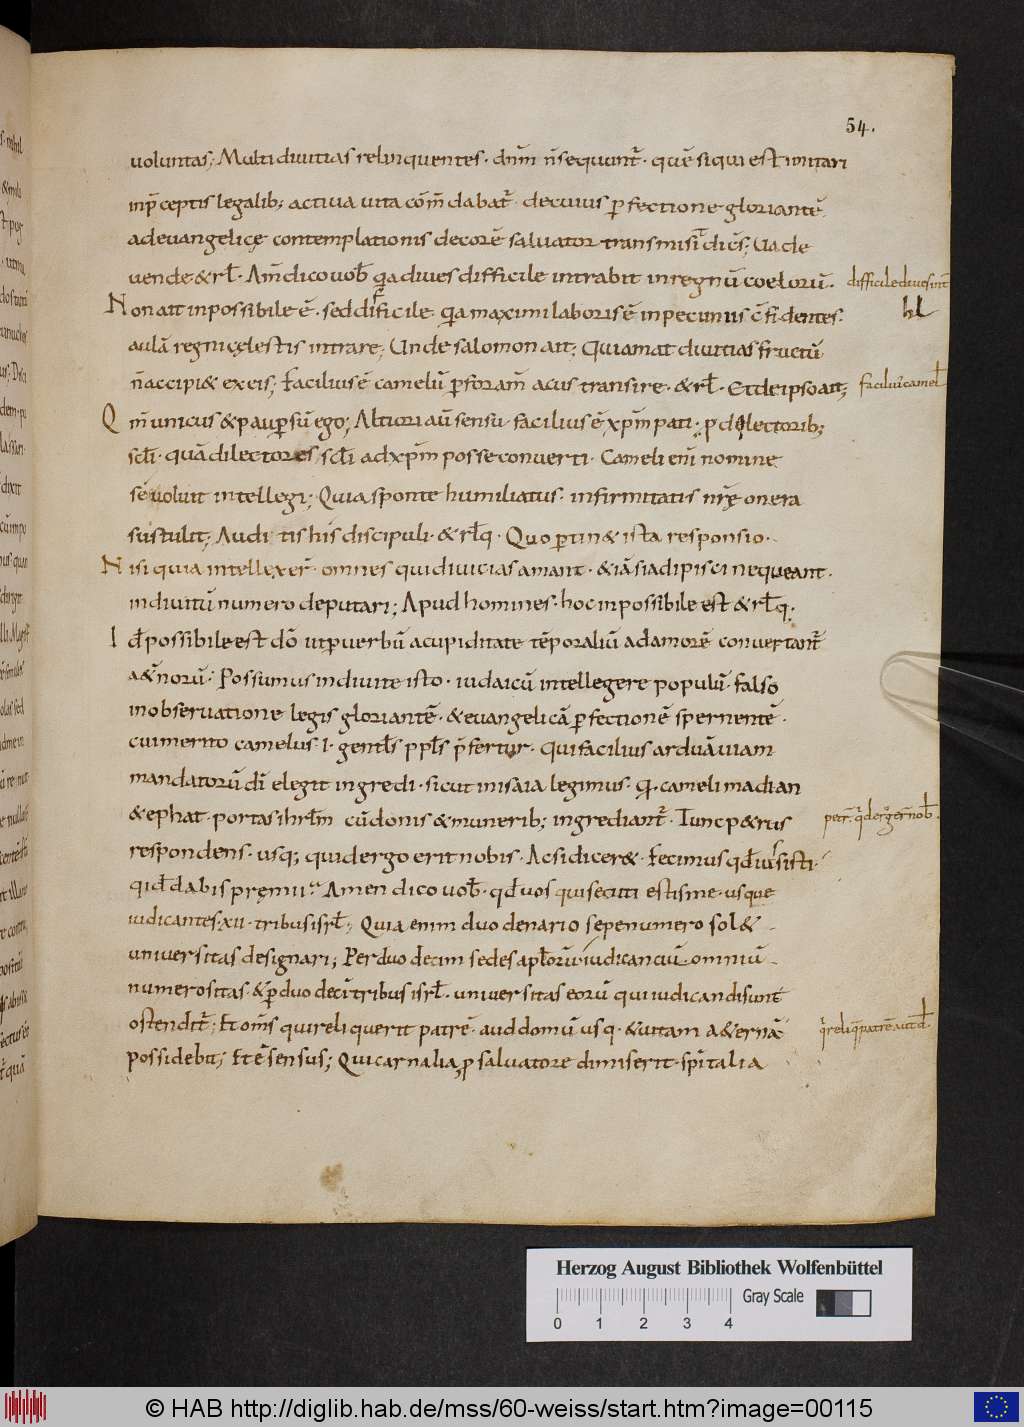 54.
uoluntas; Multi diuitias relinquentes · dnm̄ n̄ sequunt̄ · quē siqui est imitari
inp̄ceptis legalib; actiua uita cōm̄dabat̄ · decuius ꝑfectione gloriantē
adeuangelicę contemplationis decorē saluator transmisit dic̄s; Uade
uende & rł · Am̄ dico uob̄ qa diues difficile intrabit inregnū coelorū ·
difficile diues int̄
Non ait inpossibile ē · sed difficile · qa maximi laboris ē inpecuniis c̄fidentes ·
aulā regni cęlestis intrare; Unde salomon ait; Qui amat diuitias fructū
n̄ accipi& ex eis; Facilius ē camelū ꝑ foram̄ acus transire · & rł · Et de ipso ait;
facilius camel̄
Qm̄ unicus & pauꝑ sū ego; Altiori aū sensu · facilius ē xp̄m pati · ꝓ dilectorib;
sc̄li · quā dilectores sc̄li ad xp̄m posse conuerti · Cameli enī nomine
sē uoluit intellegi; Quia sponte humiliatus · infirmitatis nr̄ę onera
sustulit; Auditis his discipuli · & rłq · Quo ꝑtin& ista responsio ·
Nisi quia intellexer̄ · omnes qui diuicias amant · & iā si adipisci nequeant ·
in diuitū numero deputari; Apud homines · hoc inpossibile est & rłq ·
Id possibile est dō ut ꝑ uerbū a cupiditate tēporaliū ad amorē conuertant̄
a&̄norū · Possumus in diuite isto · iudaicū intellegere populū · falso
in obseruatione legis gloriantē · & euangelicā ꝑfectionē spernentē ·
cui merito camelus · i · gentl̄s ppl̄s p̄fertur · Qui facilius arduā uiam
mandatorū dī elegit ingredi · sicut in isaia legimus · qi cameli madian
& ephat · portas ihrlm̄ cū donis & munerib; ingrediant̄ · Tunc p&rus
petr̄ · qd erg er̄ nob̄ ·
respondens · usq; quid ergo erit nobis · Ac si dicer& · Fecimus qd iussisti ·
qid dabis pręmii · Amen dico uob̄ · qd uos qui secuti estis me · usque
iudicantes · xii · tribus isrł; Quia enim duodenario sepe numero sol&
uniuersitas designari; Per duodecim sedes apl̄orū · iudicanciū omniū
numerositas · & ꝑ duodecī tribus isrł · uniuersitas eorū qui iudicandi sunt
ostendit̄; Et om̄s qui reliquerit patrē · aut domū usq · & uitam a&ernā
q reliqt patrē aut d̄ ·
possidebit; Et ē sensus; Qui carnalia ꝓ saluatore dimiserit · sp̄italia
Herzog August Bibliothek Wolfenbüttel
Gray Scale
0 1 2 3 4
© HAB http://diglib.hab.de/mss/60-weiss/start.htm?image=00115